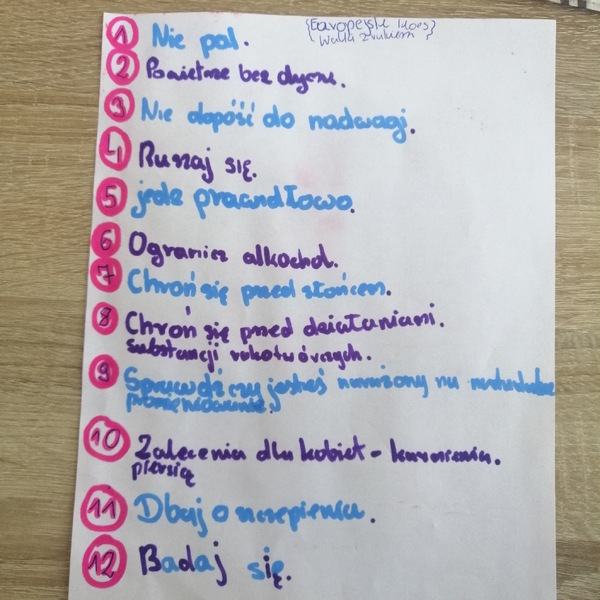 {Europejski Kodes}
Walki z rakiem
1 Nie pal.
2 Powietrze bez dymu.
3 Nie dopóść do nadwagi.
4 Ruszaj się.
5 jedz prawidłowo.
6 Ogranicz alkochol.
7 Chroń się przed słońcem.
8 Chroń się przed działaniami.
substancji rakotwórczych.
9 Sprawdź czy jesteś narażony na naturalne
promieniowanie.
10 Zalecenia dla kobiet - karmienia.
piersią
11 Dbaj o szczepienia.
12 Badaj się.